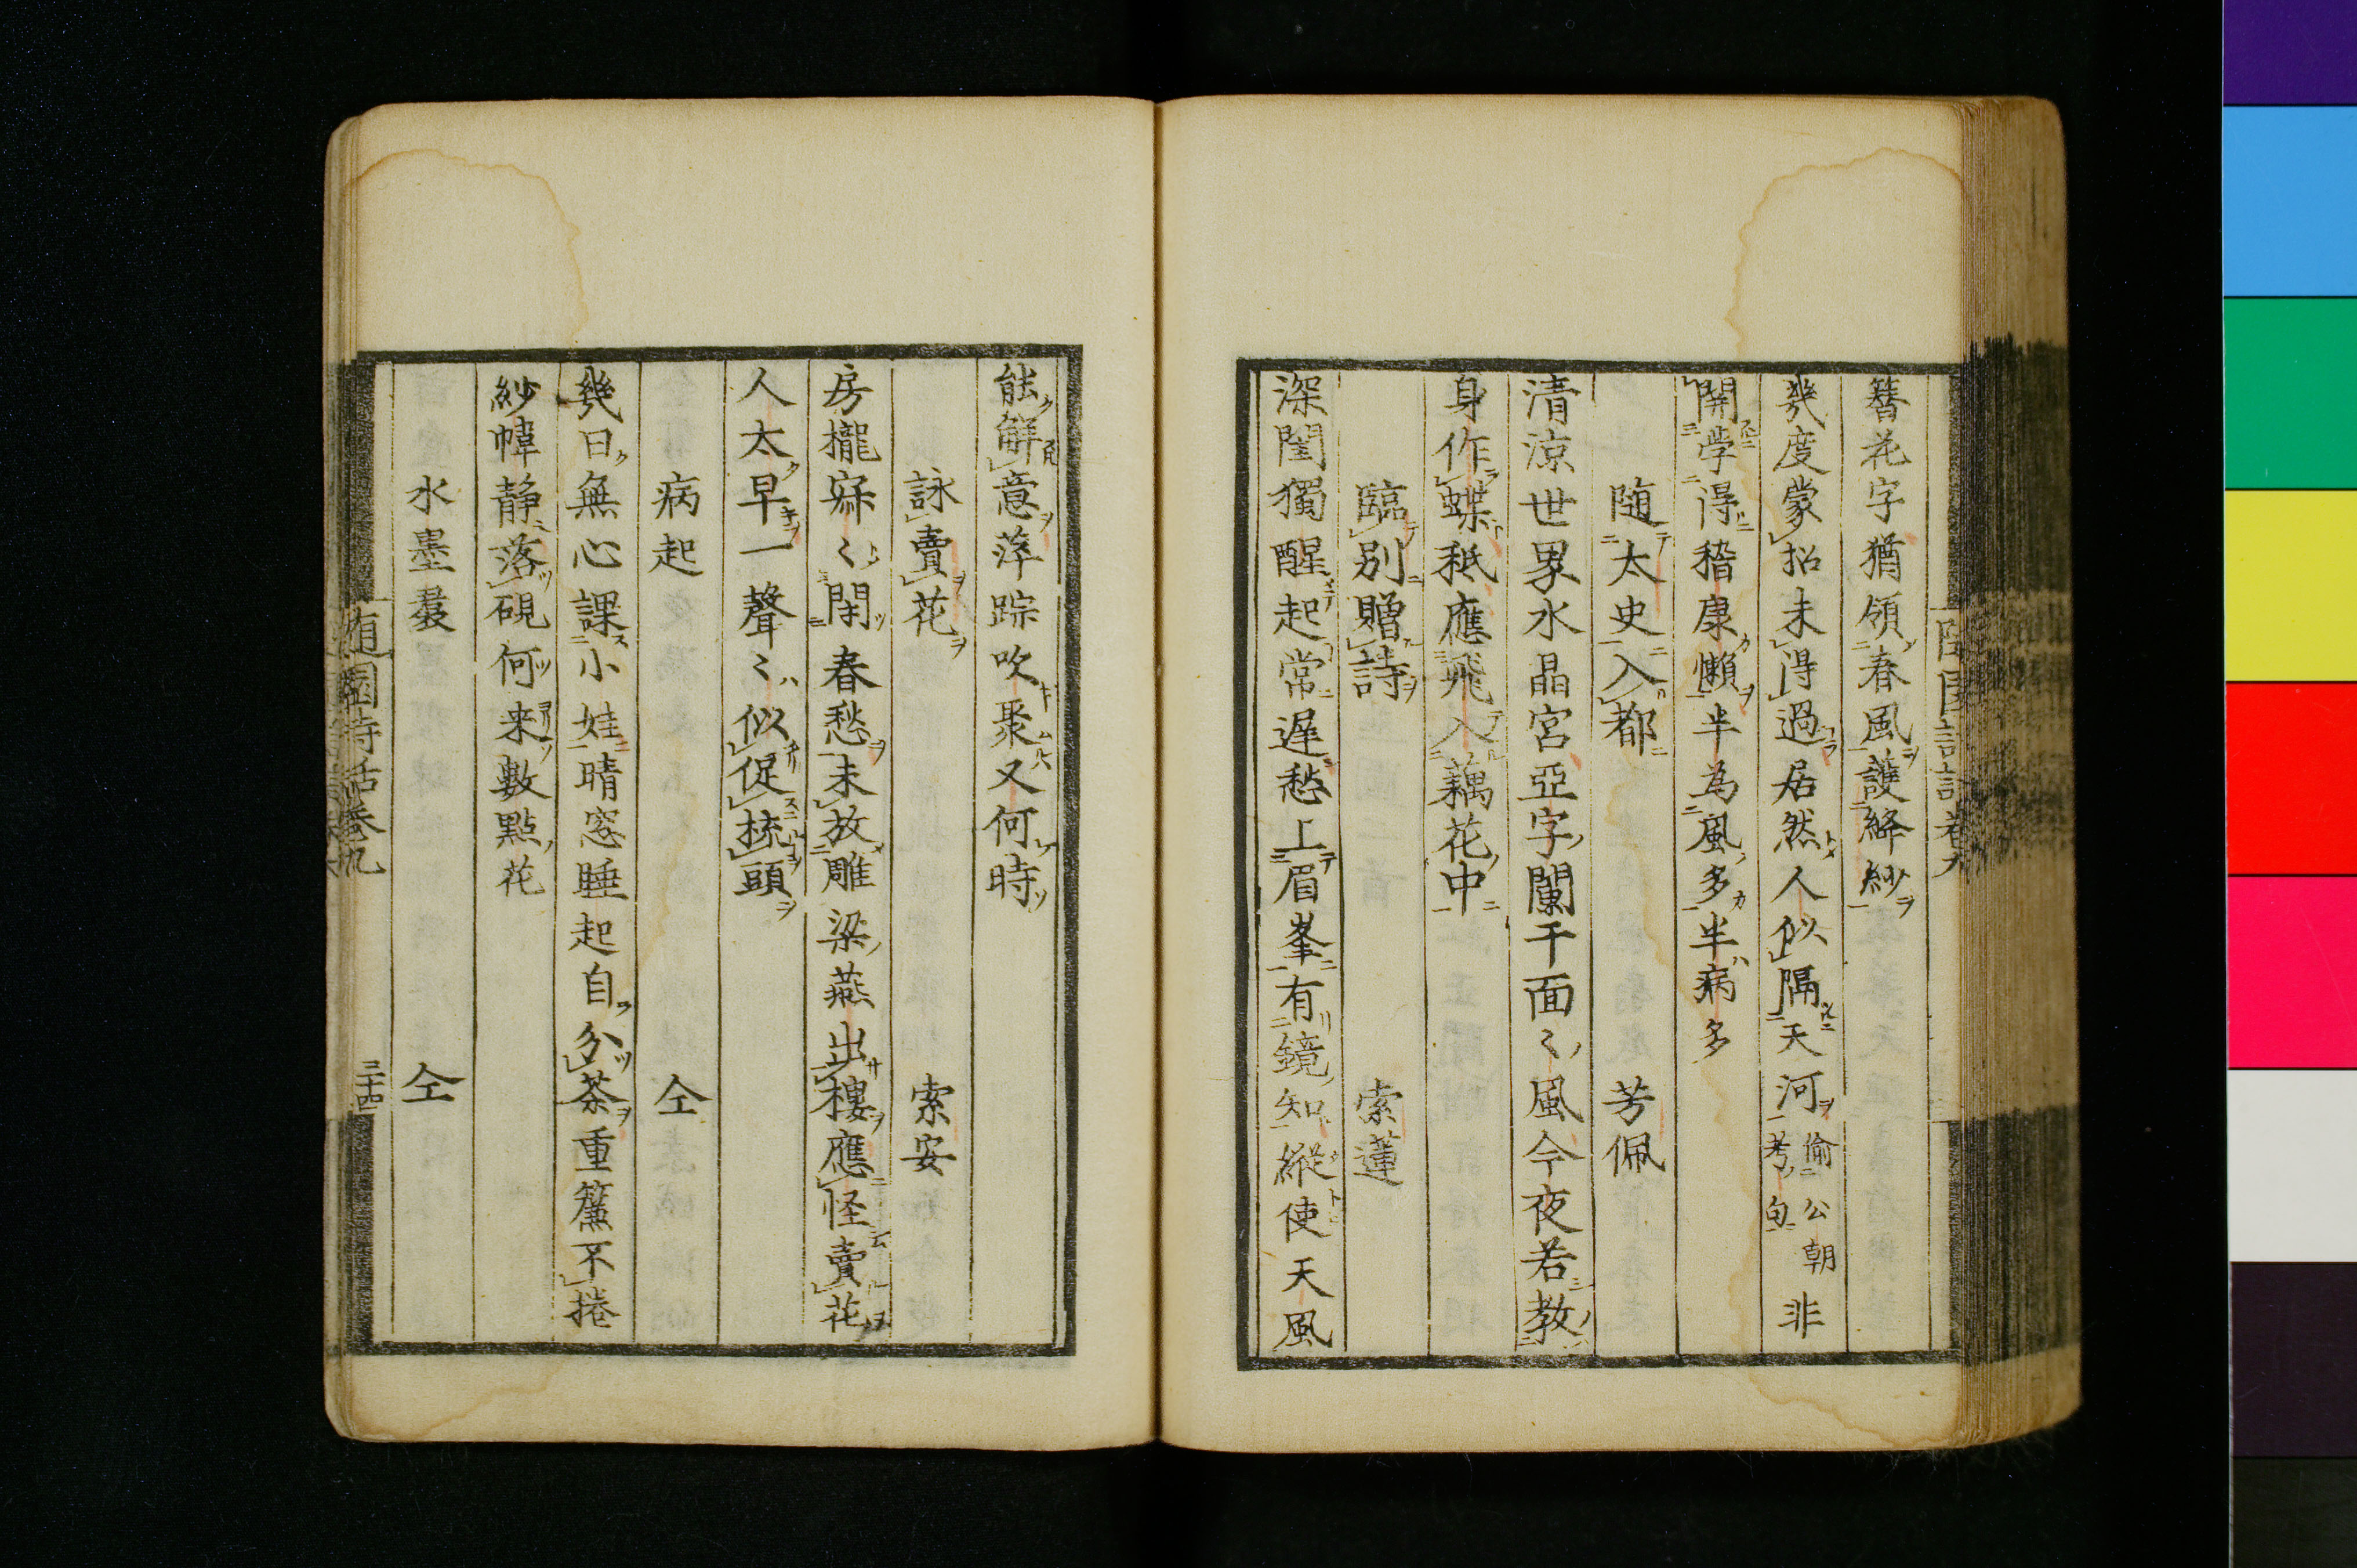 簪花字猶領春風護絳紗
幾度蒙招未得過居然人似隔天河偷公朝非考句
開学得稽康懶半為風多半病多
随太史入都　芳佩
清涼世界水晶宮亞字闌干面〻風今夜若教
身作蝶秖應飛入藕花中
臨別贈詩　索蓮
深閨獨醒起常遲愁上眉峯有鏡知縱使天風
能解意萍踪吹聚又何時
詠賣花　索安
房櫳寐〻閉春愁未放雕梁燕出樓應怪賣花
人太早一聲〻似促梳頭
病起　仝
幾日無心課小娃晴窓睡起自分茶重簾不捲
紗幃静落硯何来數點花
水墨裙　仝
随園詩話卷九
三十四